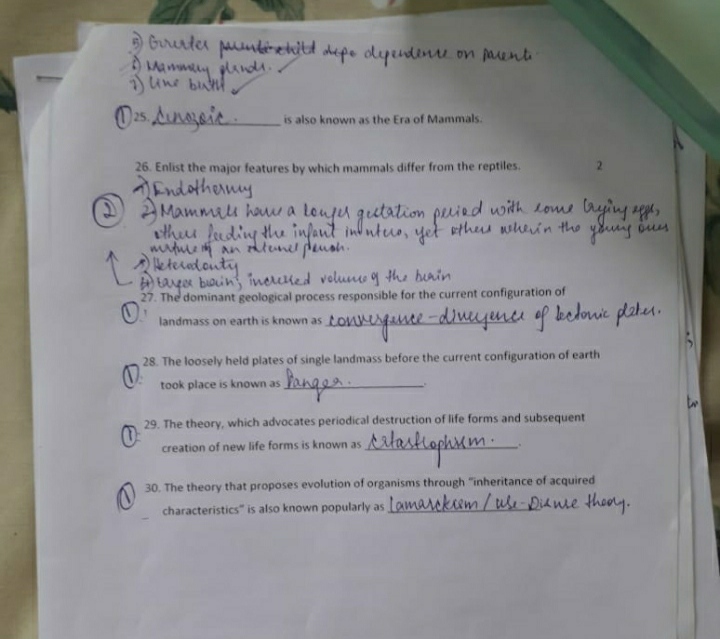 5) Greater parent-child depe dependence on parents.
6) Mammary glands.
7) Live birth
1 25. Cenozoic. is also known as the Era of Mammals.
26. Enlist the major features by which mammals differ from the reptiles. 2
1) Endothermy
2 2) Mammals have a longer gestation period with some laying eggs,
others feeding the infant in utero, yet others wherein the young ones
mature in an external pouch.
3) Heterodonty
4) Larger brain, increased volume of the brain
27. The dominant geological process responsible for the current configuration of
1 landmass on earth is known as convergence-divergence of tectonic plates.
28. The loosely held plates of single landmass before the current configuration of earth
1 took place is known as Pangea.
29. The theory, which advocates periodical destruction of life forms and subsequent
1 creation of new life forms is known as Catastrophism.
30. The theory that proposes evolution of organisms through "inheritance of acquired
1 characteristics" is also known popularly as Lamarckism / Use-Disuse theory.